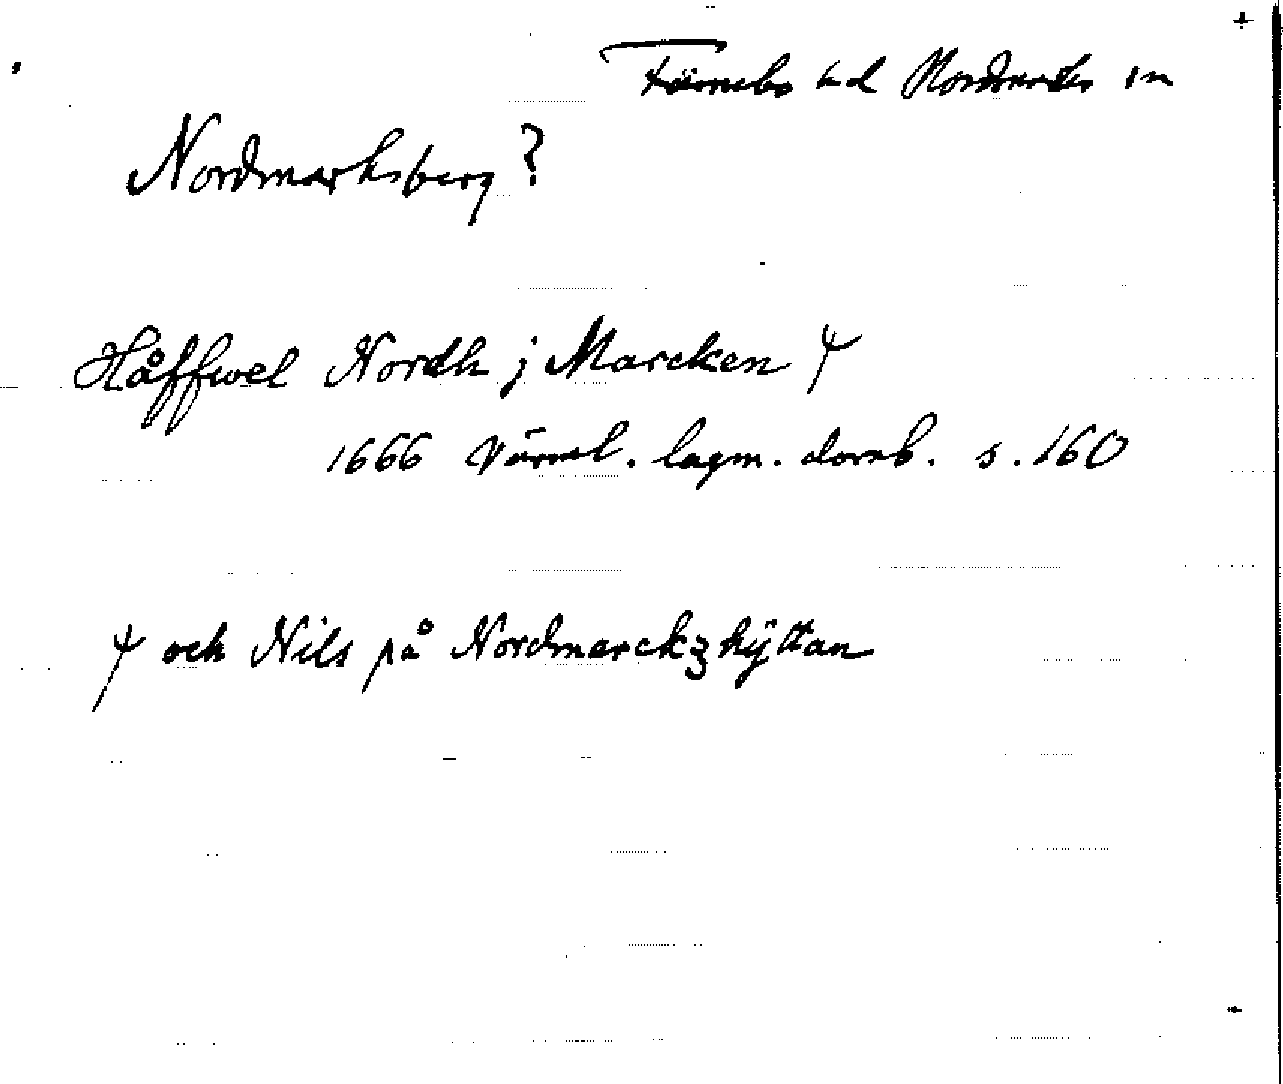 Färnebo hd Nordmarks sn
Nordmarksberg?
Håffwel Nordh j Marcken
1666 Värml. lagm. domb. s. 160
och Nils på Nordmarckzhÿttan